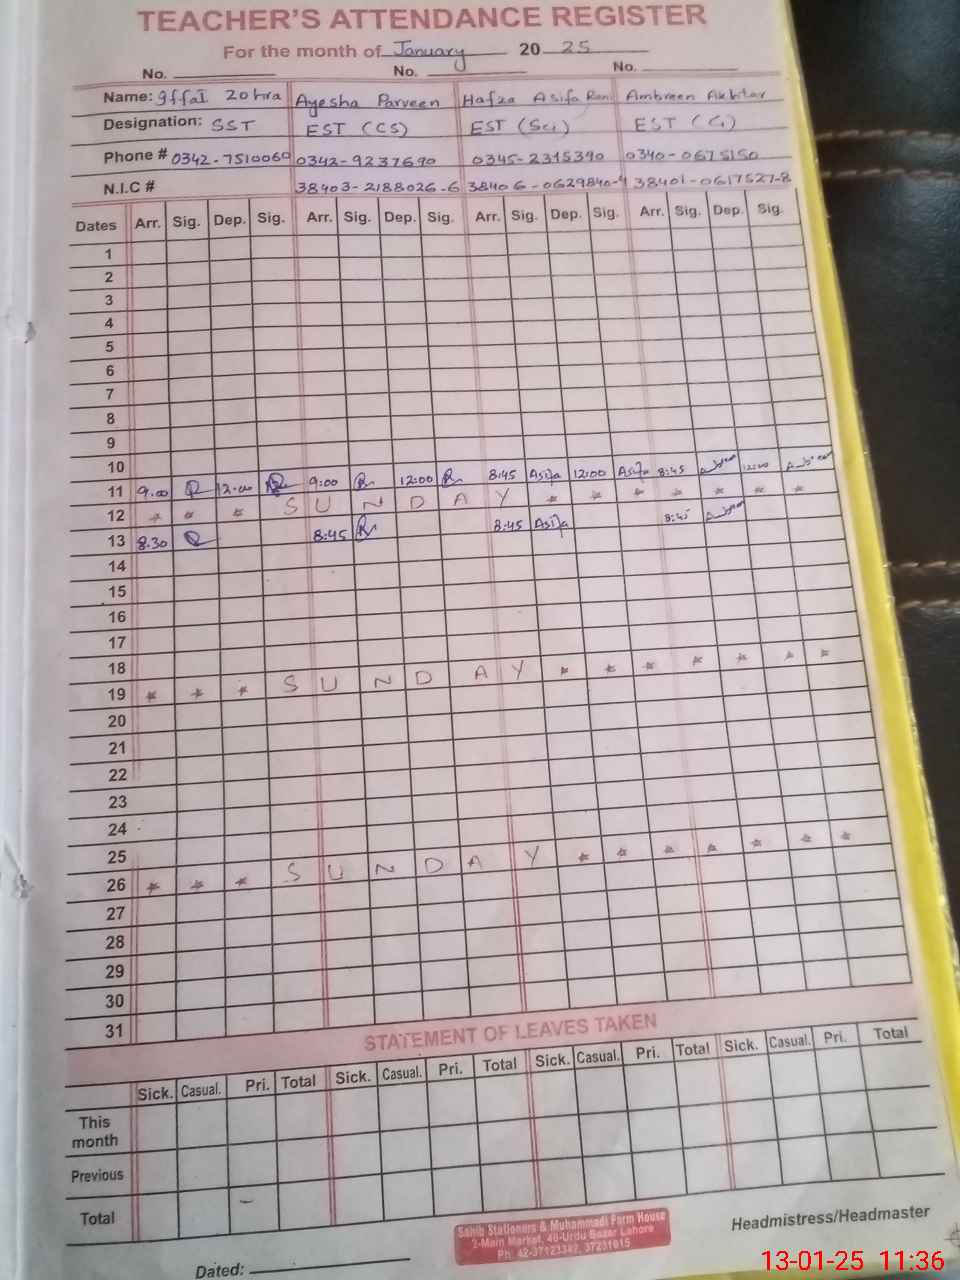 TEACHER'S ATTENDANCE REGISTER
For the month of January 20 25
No. No. No.
Name: Iffat Zohra Ayesha Parveen Hafza Asifa Rani Ambreen Akhtar
Designation: SST EST (CS) EST (Sci) EST (G)
Phone # 0342-7510060 0342-9237690 0345-2315390 0340-0675150
N.I.C # 38403-2188026-6 38406-0629840-4 38401-0617527-8
Dates Arr. Sig. Dep. Sig. Arr. Sig. Dep. Sig. Arr. Sig. Dep. Sig. Arr. Sig. Dep. Sig.
1
2
3
4
5
6
7
8
9
10
11 9.00 12.00 9:00 12:00 8:45 Asifa 12:00 Asifa 8:45 12:00
12 * * * S U N D A Y * * * * * * *
13 8.30 8:45 8:45 Asifa 8:45
14
15
16
17
18
19 * * * S U N D A Y * * * * * * *
20
21
22
23
24
25
26 * * * S U N D A Y * * * * * * *
27
28
29
30
31
STATEMENT OF LEAVES TAKEN
Sick. Casual. Pri. Total Sick. Casual. Pri. Total Sick. Casual. Pri. Total Sick. Casual. Pri. Total
This month
Previous
Total
Sahib Stationers & Muhammadi Form House
2-Main Market, 46-Urdu Bazar Lahore
Ph: 42-37123342, 37231615
Headmistress/Headmaster
Dated:
13-01-25 11:36